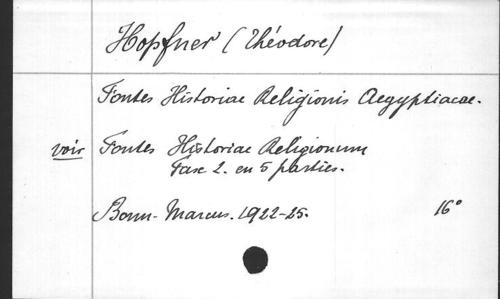 Hopfner (Théodore)
Fontes Historiae Religionis Aegyptiacae.
voir Fontes Historiae Religionum
Fasc 2. en 5 parties.
Bonn - Marcus. 1922-25. 16°